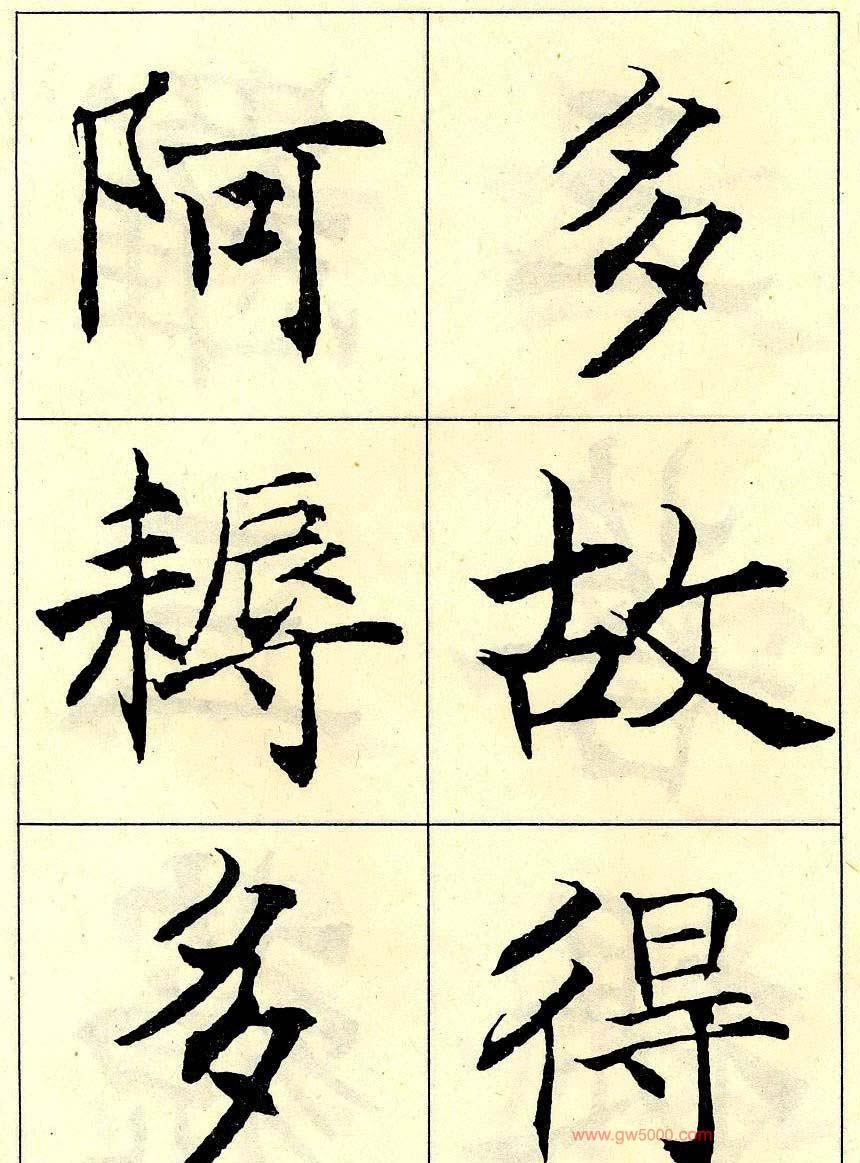 多故得
阿耨多
www.gw5000.com